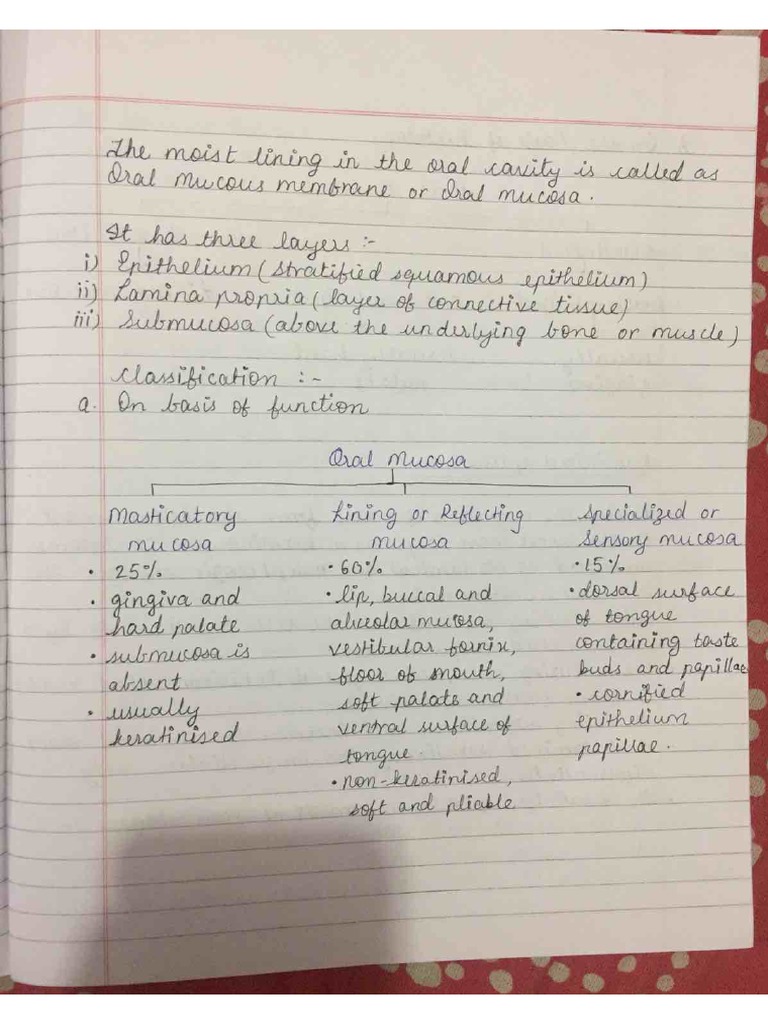 The moist lining in the oral cavity is called as
Oral mucous membrane or Oral mucosa.
It has three layers :-
i) Epithelium (stratified squamous epithelium)
ii) Lamina propria (layer of connective tissue)
iii) Submucosa (above the underlying bone or muscle)
Classification :-
a. On basis of function
Oral Mucosa
Masticatory
mucosa
• 25%
• gingiva and
hard palate
• submucosa is
absent
• usually
keratinised
Lining or Reflecting
mucosa
• 60%
• lip, buccal and
alveolar mucosa,
vestibular fornix,
floor of mouth,
soft palate and
ventral surface of
tongue
• non-keratinised,
soft and pliable
Specialized or
Sensory mucosa
• 15%
• dorsal surface
of tongue
containing taste
buds and papillae
• cornified
epithelium
papillae.